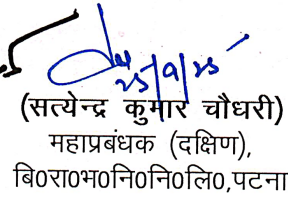 25/9/25
(सत्येन्द्र कुमार चौधरी)
महाप्रबंधक (दक्षिण),
बि0रा0भ0नि0नि0लि0,पटना